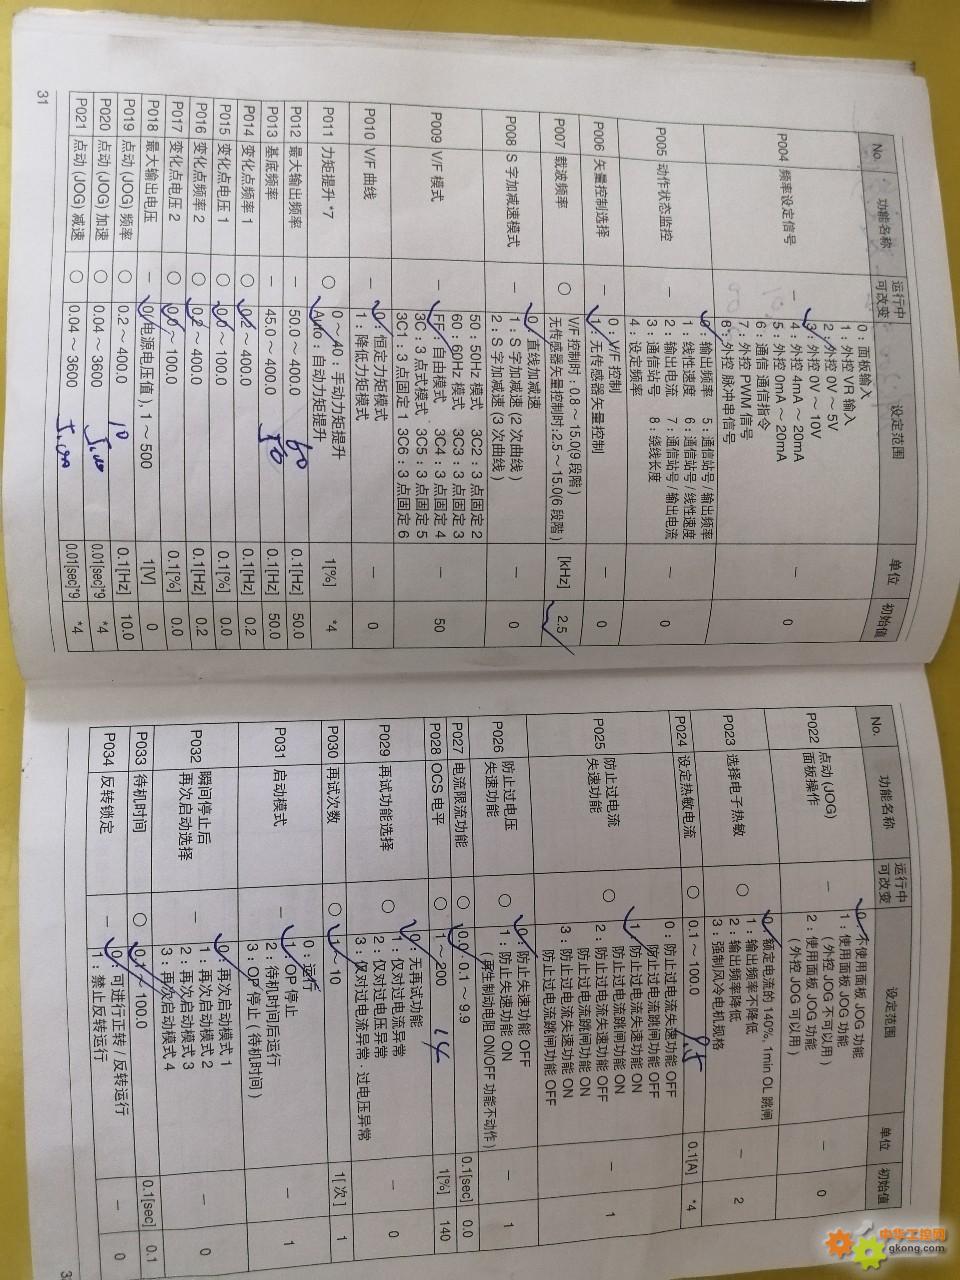 No. 功能名称 运行中可改变 设定范围 单位 初始值
P004 频率设定信号 — 0：面板输入 — 0
1：外控 VR 输入
2：外控 0V～5V
3：外控 0V～10V
4：外控 4mA～20mA
5：外控 0mA～20mA
6：通信 通信指令
7：外控 PWM 信号
8：外控 脉冲串信号
P005 动作状态监控 0：输出频率 5：通信站号/输出频率 — 0
1：线性速度 6：通信站号/线性速度
2：输出电流 7：通信站号/输出电流
3：通信站号 8：绕线长度
4：设定频率
P006 矢量控制选择 — 0：V/F 控制 — 0
1：无传感器矢量控制
P007 载波频率 ○ V/F 控制时：0.8～15.0(9 段階) [kHz] 2.5
无传感器矢量控制时:2.5～15.0(6 段階)
P008 S 字加减速模式 — 0：直线加减速 — 0
1：S 字加减速 (2 次曲线)
2：S 字加减速 (3 次曲线)
P009 V/F 模式 — 50：50Hz 模式 3C2：3 点固定 2 — 50
60：60Hz 模式 3C3：3 点固定 3
FF：自由模式 3C4：3 点固定 4
3C：3 点式模式 3C5：3 点固定 5
3C1：3 点固定 1 3C6：3 点固定 6
P010 V/F 曲线 — 0：恒定力矩模式 — 0
1：降低力矩模式
P011 力矩提升 *7 ○ 0～40：手动力矩提升 1[%] *4
Auto：自动力矩提升
P012 最大输出频率 — 50.0～400.0 60 0.1[Hz] 50.0
P013 基底频率 — 45.0～400.0 50 0.1[Hz] 50.0
P014 变化点频率 1 ○ 0.2～400.0 0.1[Hz] 0.2
P015 变化点电压 1 ○ 0.0～100.0 0.1[%] 0.0
P016 变化点频率 2 ○ 0.2～400.0 0.1[Hz] 0.2
P017 变化点电压 2 ○ 0.0～100.0 0.1[%] 0.0
P018 最大输出电压 — 0(电源电压值), 1～500 1[V] 0
P019 点动 (JOG) 频率 ○ 0.2～400.0 10 0.1[Hz] 10.0
P020 点动 (JOG) 加速 ○ 0.04～3600 5.00 0.01[sec]*9 *4
P021 点动 (JOG) 减速 ○ 0.04～3600 5.00 0.01[sec]*9 *4
31
No. 功能名称 运行中可改变 设定范围 单位 初始值
P022 点动 (JOG) 面板操作 — 0：不使用面板 JOG 功能 — 0
1：使用面板 JOG 功能
(外控 JOG 不可以用)
2：使用面板 JOG 功能
(外控 JOG 可以用)
P023 选择电子热敏 ○ 0：额定电流的140%, 1min OL 跳闸 — 2
1：输出频率不降低
2：输出频率降低
3：强制风冷电机规格
P024 设定热敏电流 ○ 0.1～100.0 9.5 0.1[A] *4
P025 防止过电流失速功能 ○ 0：防止过电流失速功能 OFF — 1
防止过电流跳闸功能 OFF
1：防止过电流失速功能 ON
防止过电流跳闸功能 ON
2：防止过电流失速功能 OFF
防止过电流跳闸功能 ON
3：防止过电流失速功能 ON
防止过电流跳闸功能 OFF
P026 防止过电压失速功能 ○ 0：防止失速功能 OFF — 1
1：防止失速功能 ON
(再生制动电阻 ON/OFF 功能不动作)
P027 电流限流功能 ○ 0.0, 0.1～9.9 0.1[sec] 0.0
P028 OCS 电平 ○ 1～200 1[%] 140
P029 再试功能选择 ○ 0：无再试功能 — 0
1：仅对过电流异常
2：仅对过电压异常
3：仅对过电流异常·过电压异常
P030 再试次数 ○ 1～10 1[次] 1
P031 启动模式 — 0：运行 — 1
1：OP 停止
2：待机时间后运行
3：OP 停止 (待机时间)
P032 瞬间停止后再次启动选择 — 0：再次启动模式 1 — 0
1：再次启动模式 2
2：再次启动模式 3
3：再次启动模式 4
P033 待机时间 ○ 0.1～100.0 0.1[sec] 0.1
P034 反转锁定 — 0：可进行正转/反转运行 — 0
1：禁止反转运行
中华工控网
gkong.com